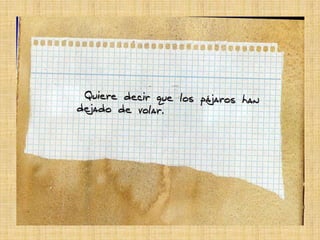 Quiere decir que los pájaros han
dejado de volar.